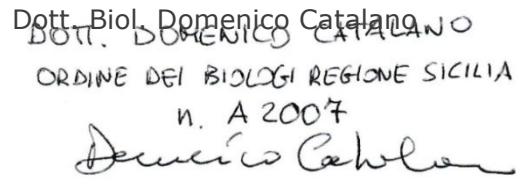 Dott. Biol. Domenico Catalano
DOTT. DOMENICO CATALANO
ORDINE DEI BIOLOGI REGIONE SICILIA
n. A 2007
Domenico Catalano